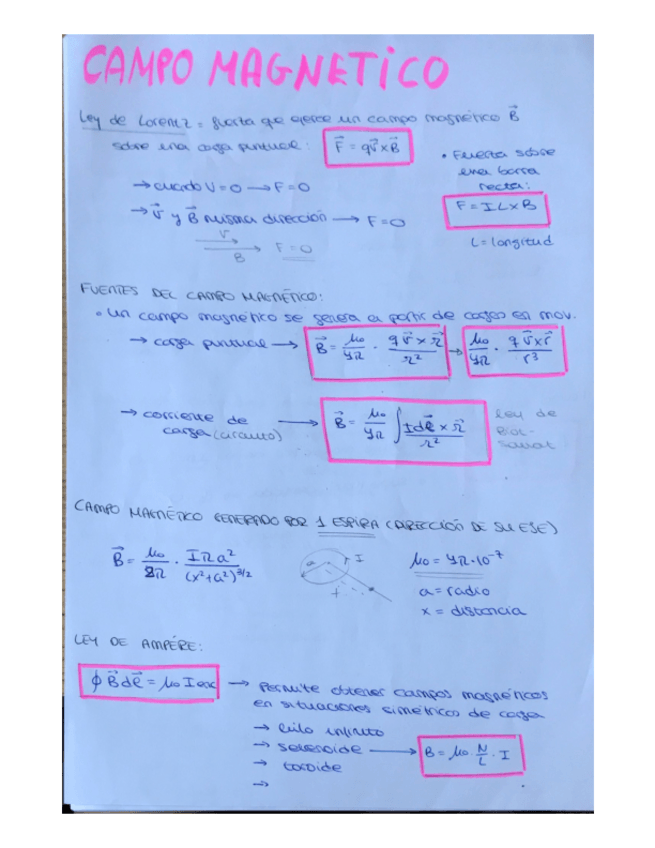 CAMPO MAGNETICO
Ley de Lorentz = fuerza que ejerce un campo magnético B⃗
sobre una carga puntual: F⃗ = qv⃗ x B⃗
• Fuerza sobre
una barra
recta:
F = I L x B
L = longitud
→ cuando V = 0 → F = 0
→ v⃗ y B⃗ misma dirección → F = 0
v⃗
B
F = 0
FUENTES DEL CAMPO MAGNÉTICO:
• Un campo magnético se genera a partir de cargas en mov.
→ carga puntual → B⃗ = μ₀/4π · q v⃗ x r⃗/r² → μ₀/4π · q v⃗ x r⃗/r³
→ corriente de
carga (circuito) → B⃗ = μ₀/4π ∫ I dℓ⃗ x r⃗/r²
Ley de
Biot-
Savart
CAMPO MAGNÉTICO GENERADO POR 1 ESPIRA (DIRECCIÓN DE SU EJE)
B⃗ = μ₀/2π · I π a²/(x² + a²)^3/2
a r I
μ₀ = 4π·10⁻⁷
a = radio
x = distancia
LEY DE AMPÉRE:
∮ B⃗ dℓ⃗ = μ₀ I → Permite obtener campos magnéticos
en situaciones simétricas de carga
→ hilo infinito
→ solenoide → B = μ₀ · N/L · I
→ toroide
→